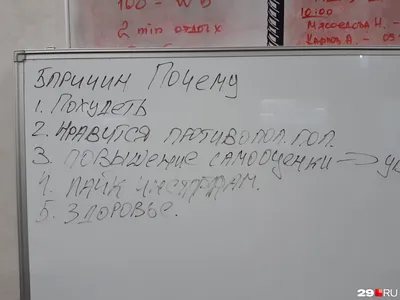 100 - WB
2 min отдых
10:00
Мясоедова Н. -
Карпов А. - 09
5 причин Почему
1. Похудеть
2. Нравится противопол. пол.
3. Повышение самооценки → ув
4. Лайк инстаграм.
5. Здоровье.
29.RU